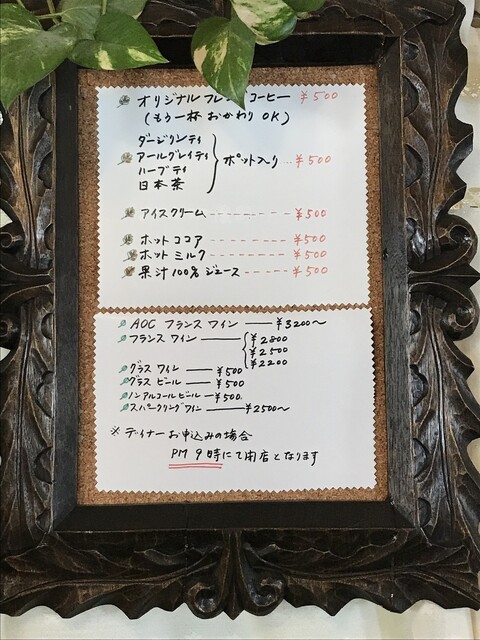 オリジナルブレンドコーヒー ¥500
(もう一杯 おかわり OK)
ダージリンティ
アールグレイティ
ハーブティ
日本茶
ポット入り…¥500
アイスクリーム------------¥500
ホットココア------------¥500
ホットミルク------------¥500
果汁100%ジュース--------¥500
AOC フランスワイン――¥3200〜
フランスワイン――¥2800
¥2500
¥2200
グラスワイン――¥500
グラスビール――¥500
ノンアルコールビール―¥500.
スパークリングワイン――¥2500〜
※ディナーお申込みの場合
PM 9時にて閉店となります